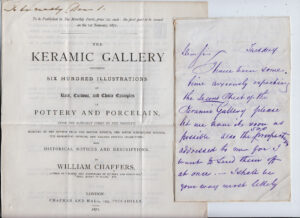 To be Published in Ten Monthly Parts, price 12s. each - the first part to be issued
on the 1st November, 1871.
THE
KERAMIC GALLERY
SIX HUNDRED ILLUSTRATIONS
Rare, Curious, and Choice Examples
OF
POTTERY AND PORCELAIN,
FROM THE EARLIEST TIMES TO THE PRESENT
WITH
HISTORICAL NOTICES AND DESCRIPTIONS.
BY
WILLIAM CHAFFERS,
LONDON:
CHAPMAN AND HALL, 193, PICCADILLY.
1871.
Tuesday
I have been some
time anxiously expecting
the Second Sheet of the
Keramic Gallery please
let me have it soon as
possible also the Prospectus
addressed to me for I
want to send them off
at once - I shall be
your way most likely